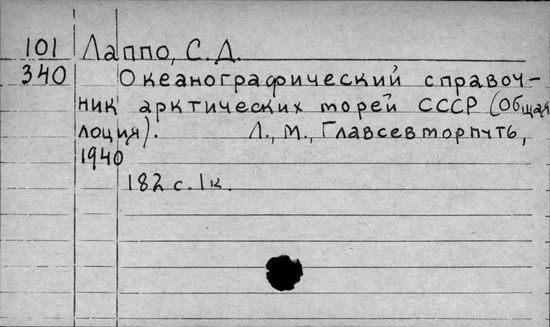 101 Лаппо, С. Д.
340 Океанографический справоч-
ник арктических морей СССР (Общая
лоция). Л., М., Главсевморпуть,
1940
182 с. 1к.